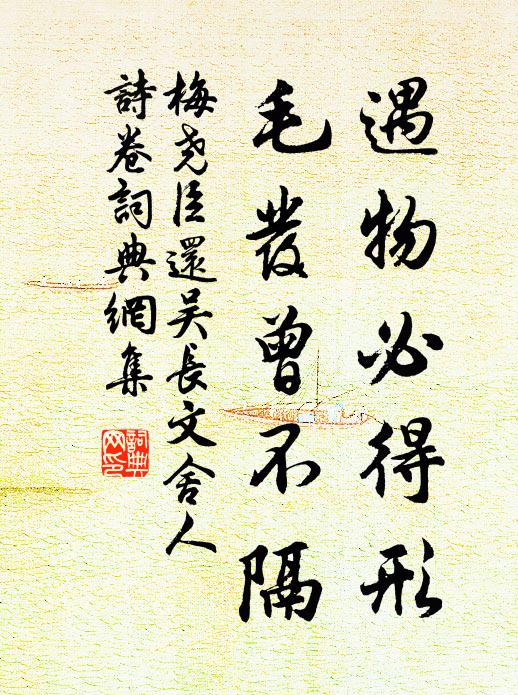 遇物必得形
毛發曾不隔
梅堯臣還吳長文舍人
詩卷詞典網集
詞典网印